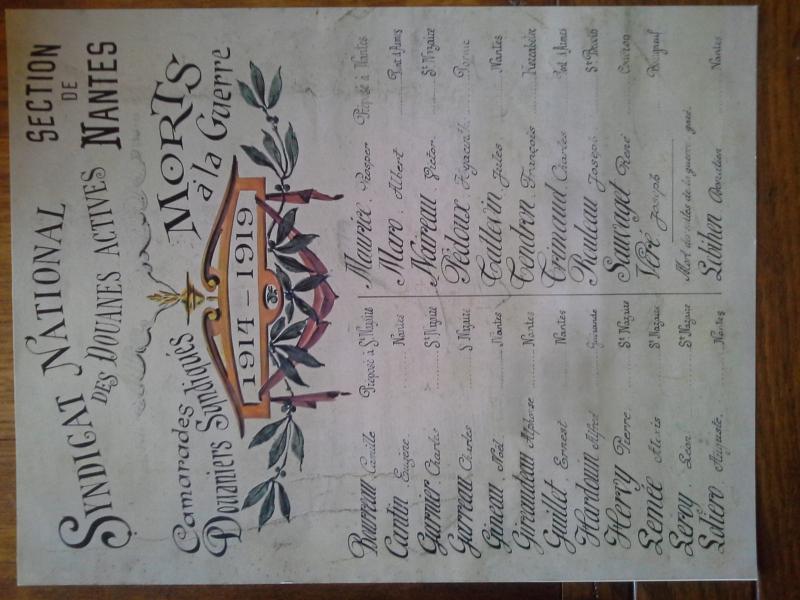 SYNDICAT NATIONAL
DES DOUANES ACTIVES
SECTION
DE
NANTES
Camarades
Douaniers Syndiqués
MORTS
à la Guerre
1914 - 1919
Burreau Camille Préposé à St Nazaire
Cantin Eugène Nantes
Garnier Charles St Nazaire
Garreau Charles St Nazaire
Gineau Noël Nantes
Giraudeau Alphonse Nantes
Guillet Ernest Nantes
Hardouin Alfred Guérande
Hervy Pierre St Nazaire
Lemée Alexis St Nazaire
Leroy Léon St Nazaire
Auguste Nantes
Maurice Prosper Préposé à Nantes
Maro Albert
Naireau Victor St Nazaire
Pédoux Hyacinthe Pornic
Tallevin Jules Nantes
Tendron François
Trimaud Charles
Ruleau Joseph St Brévin
Sauvaget René Couëron
Véré Joseph
Mort des suites de la guerre
Libihen Nantes